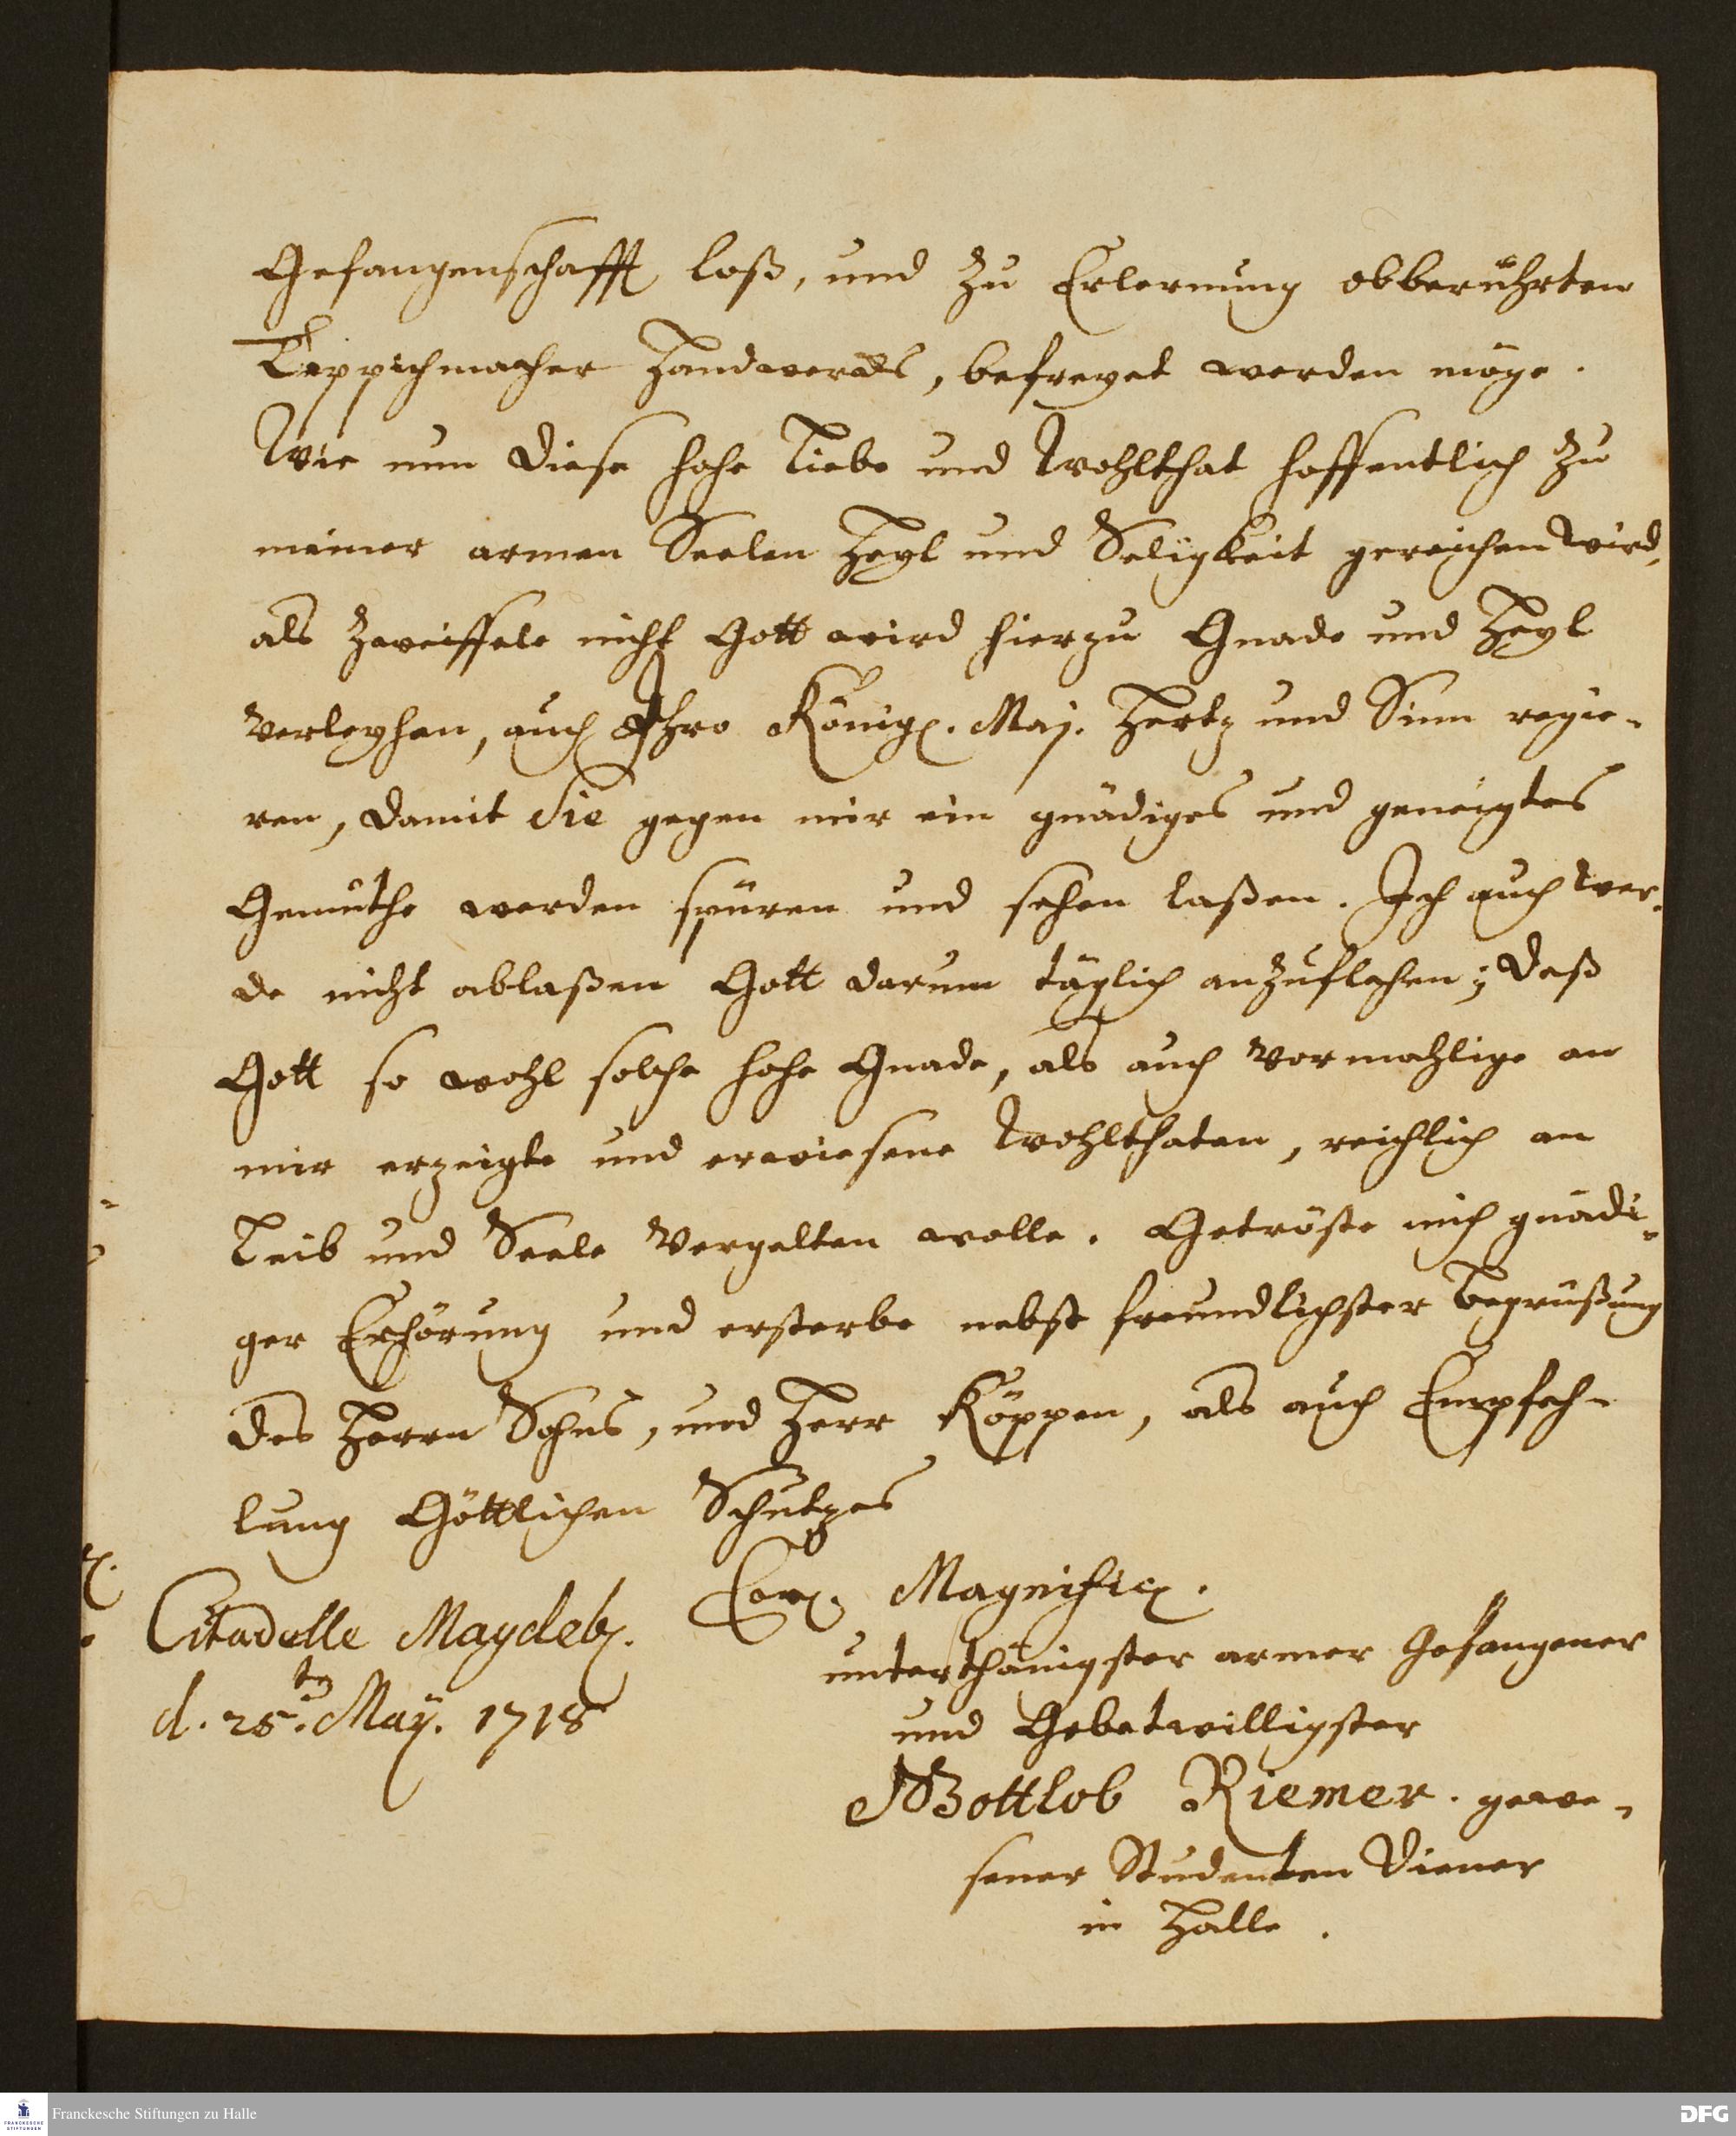 Gefangenschafft loß, und zu Erlernung obberührten
Teppichmacher Handwercks, befreyet werden möge.
Wie nun diese hohe Liebe und Wohlthat hoffentlich zu
meiner armen Seelen Heyl und Seligkeit gereichen wird,
als zweiffele nicht Gott wird hierzu Gnade und Heyl
verleyhen, auch Ihro Königl. Maj. Hertz und Sinn regie-
ren, damit Sie gegen mir ein gnädiges und geneigtes
Gemüthe werden spüren und sehen laßen. Ich auch wer-
de nicht ablaßen Gott darum täglich anzuflehen; daß
Gott so wohl solche hohe Gnade, als auch vormahlige an
mir erzeigte und erwiesene Wohlthaten, reichlich an
Leib und Seele vergelten wolle. Getröste mich gnädi-
ger Erhörung und ersterbe nebst freundlichster Begrüßung
des Herrn Sohns, und Herr Köppen, als auch Empfeh-
lung Göttlichen Schutzes
Ew. Magnific.
Citadelle Magdeb.
d. 25.ten May. 1718
unterthänigster armer Gefangener
und Gebetwilligster
Gottlob Riemer. gewe-
sener Studenten Diener
in Halle.
Franckesche Stiftungen zu Halle
DFG